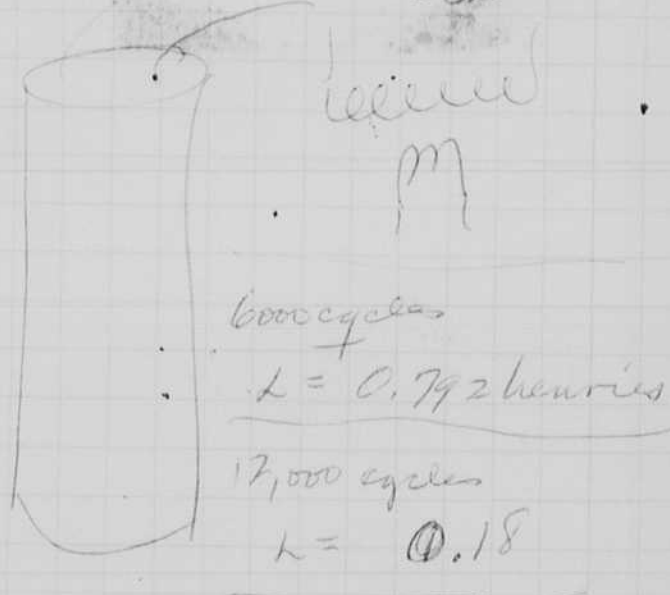 6000 cycles
L = 0.792 henries
12,000 cycles
L = 0.18